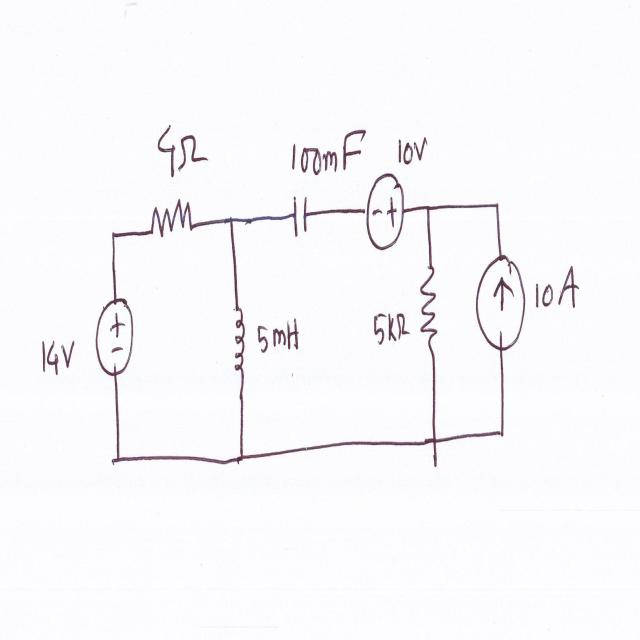 4Ω
100mF
10V
- +
+
-
14V
5mH
5kΩ
10A